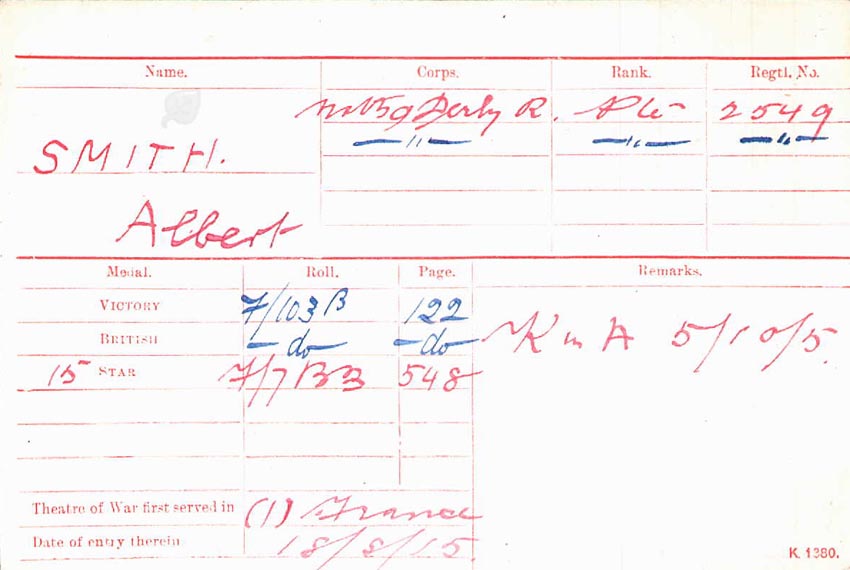 Name. Corps. Rank. Regtl. No.
Notts & Derby R. Pte 2549
SMITH. —"— —"— —"—
Albert
Medal. Roll. Page. Remarks.
VICTORY 7/103 B 122
BRITISH — do — do K in A 5/10/5.
15 STAR 7/7 B3 548
Theatre of War first served in (1) France
Date of entry therein 18/8/15.
K. 1380.